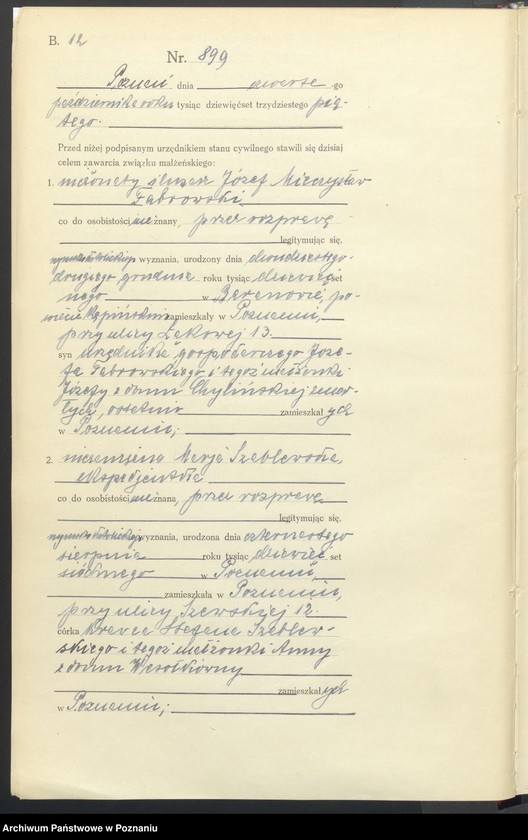 B. 12
Nr. 899
Poznań dnia czwartego
października roku tysiąc dziewięćset trzydziestego pią-
tego.
Przed niżej podpisanym urzędnikiem stanu cywilnego stawili się dzisiaj
celem zawarcia związku małżeńskiego:
1. nieżonaty ślusarz Józef Mieczysław
Dabrowski,
co do osobistości nieznany, przez rozprawę
legitymując się.
rzymskokatolickiego wyznania, urodzony dnia dwudziestego-
drugiego grudnia roku tysiąc dziewięćset
w Baranowie, po-
wiecie Kępińskim zamieszkały w Poznaniu,
przy ulicy Łąkowej 13.
syn urzędnika gospodarczego Józe-
fa Dabrowskiego i tegoż małżonki
Józefy z domu Chylińskiej zmar-
łych, ostatnio zamieszkałych
w Poznaniu;
2. niezamężna Marja Szablewska,
ekspedjentka
co do osobistości nieznana, przez rozprawę
legitymując się.
rzymskokatolickiego wyznania, urodzona dnia czternastego
sierpnia roku tysiąc dziewięćset
siódmego w Poznaniu,
zamieszkała w Poznaniu,
przy ulicy Szewskiej 12.
córka krawca Stefana Szablew-
skiego i tegoż małżonki Anny
z domu Wesołkówny
zamieszkałych
w Poznaniu;
Archiwum Państwowe w Poznaniu